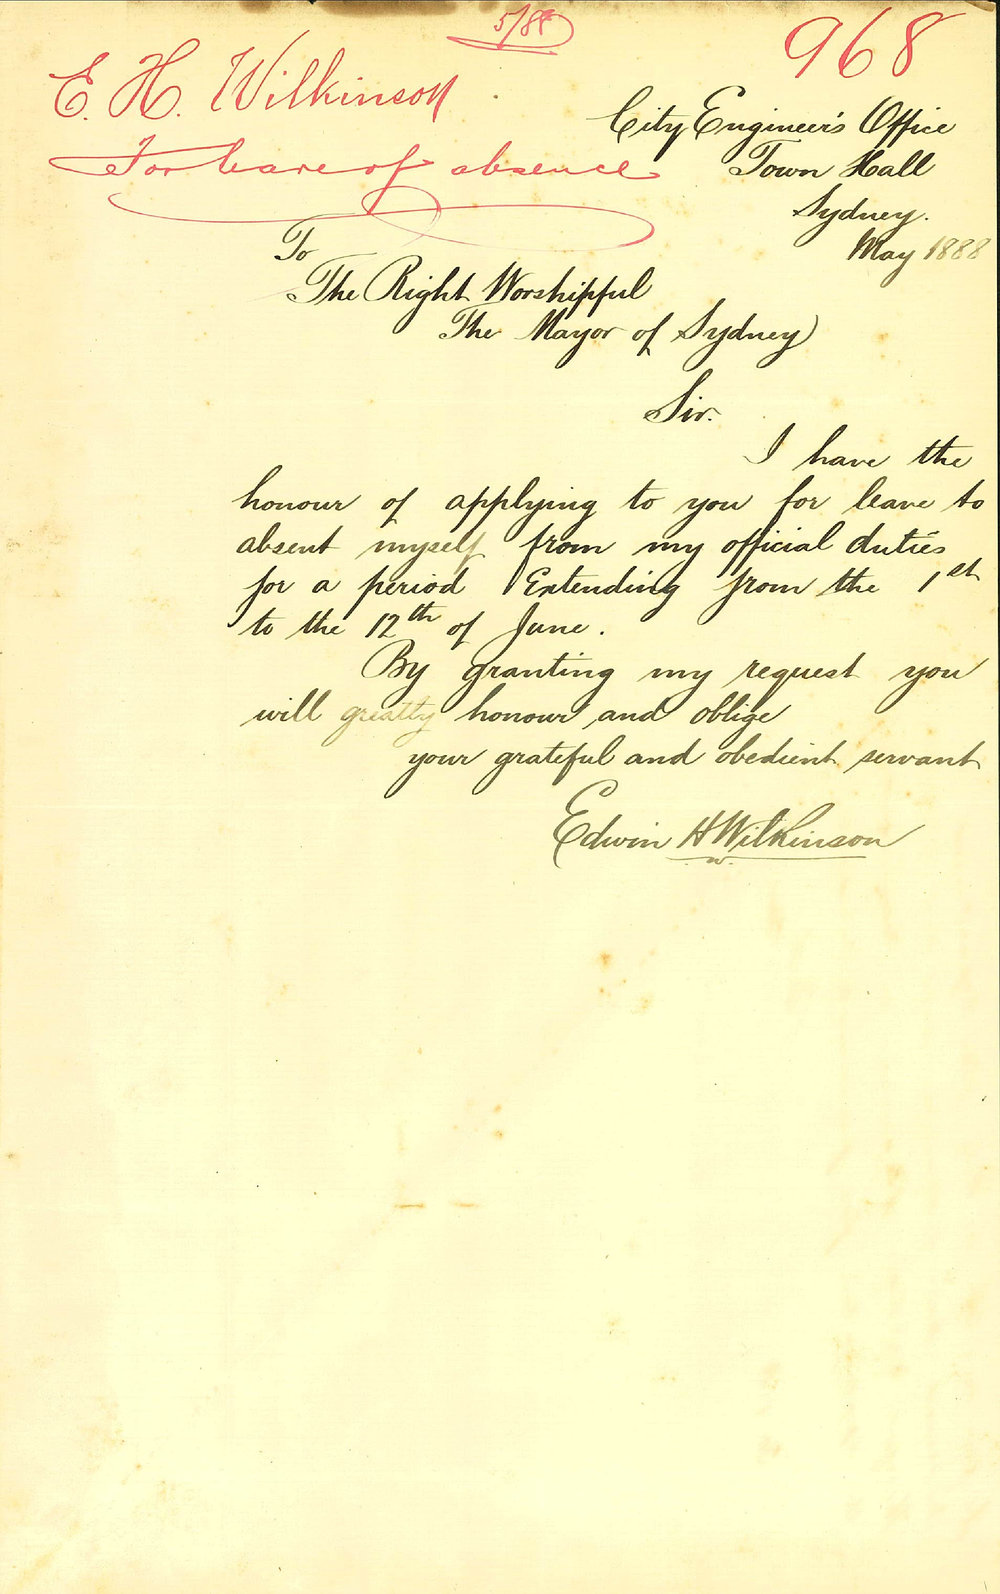 5/88
968
E. H. Wilkinson
For leave of absence
City Engineer's Office
Town Hall
Sydney.
May 1888
To
The Right Worshipful
The Mayor of Sydney
Sir.
I have the
honour of applying to you for leave to
absent myself from my official duties
for a period Extending from the 1st
to the 12th of June.
By granting my request you
will greatly honour and oblige
your grateful and obedient servant
Edwin H Wilkinson